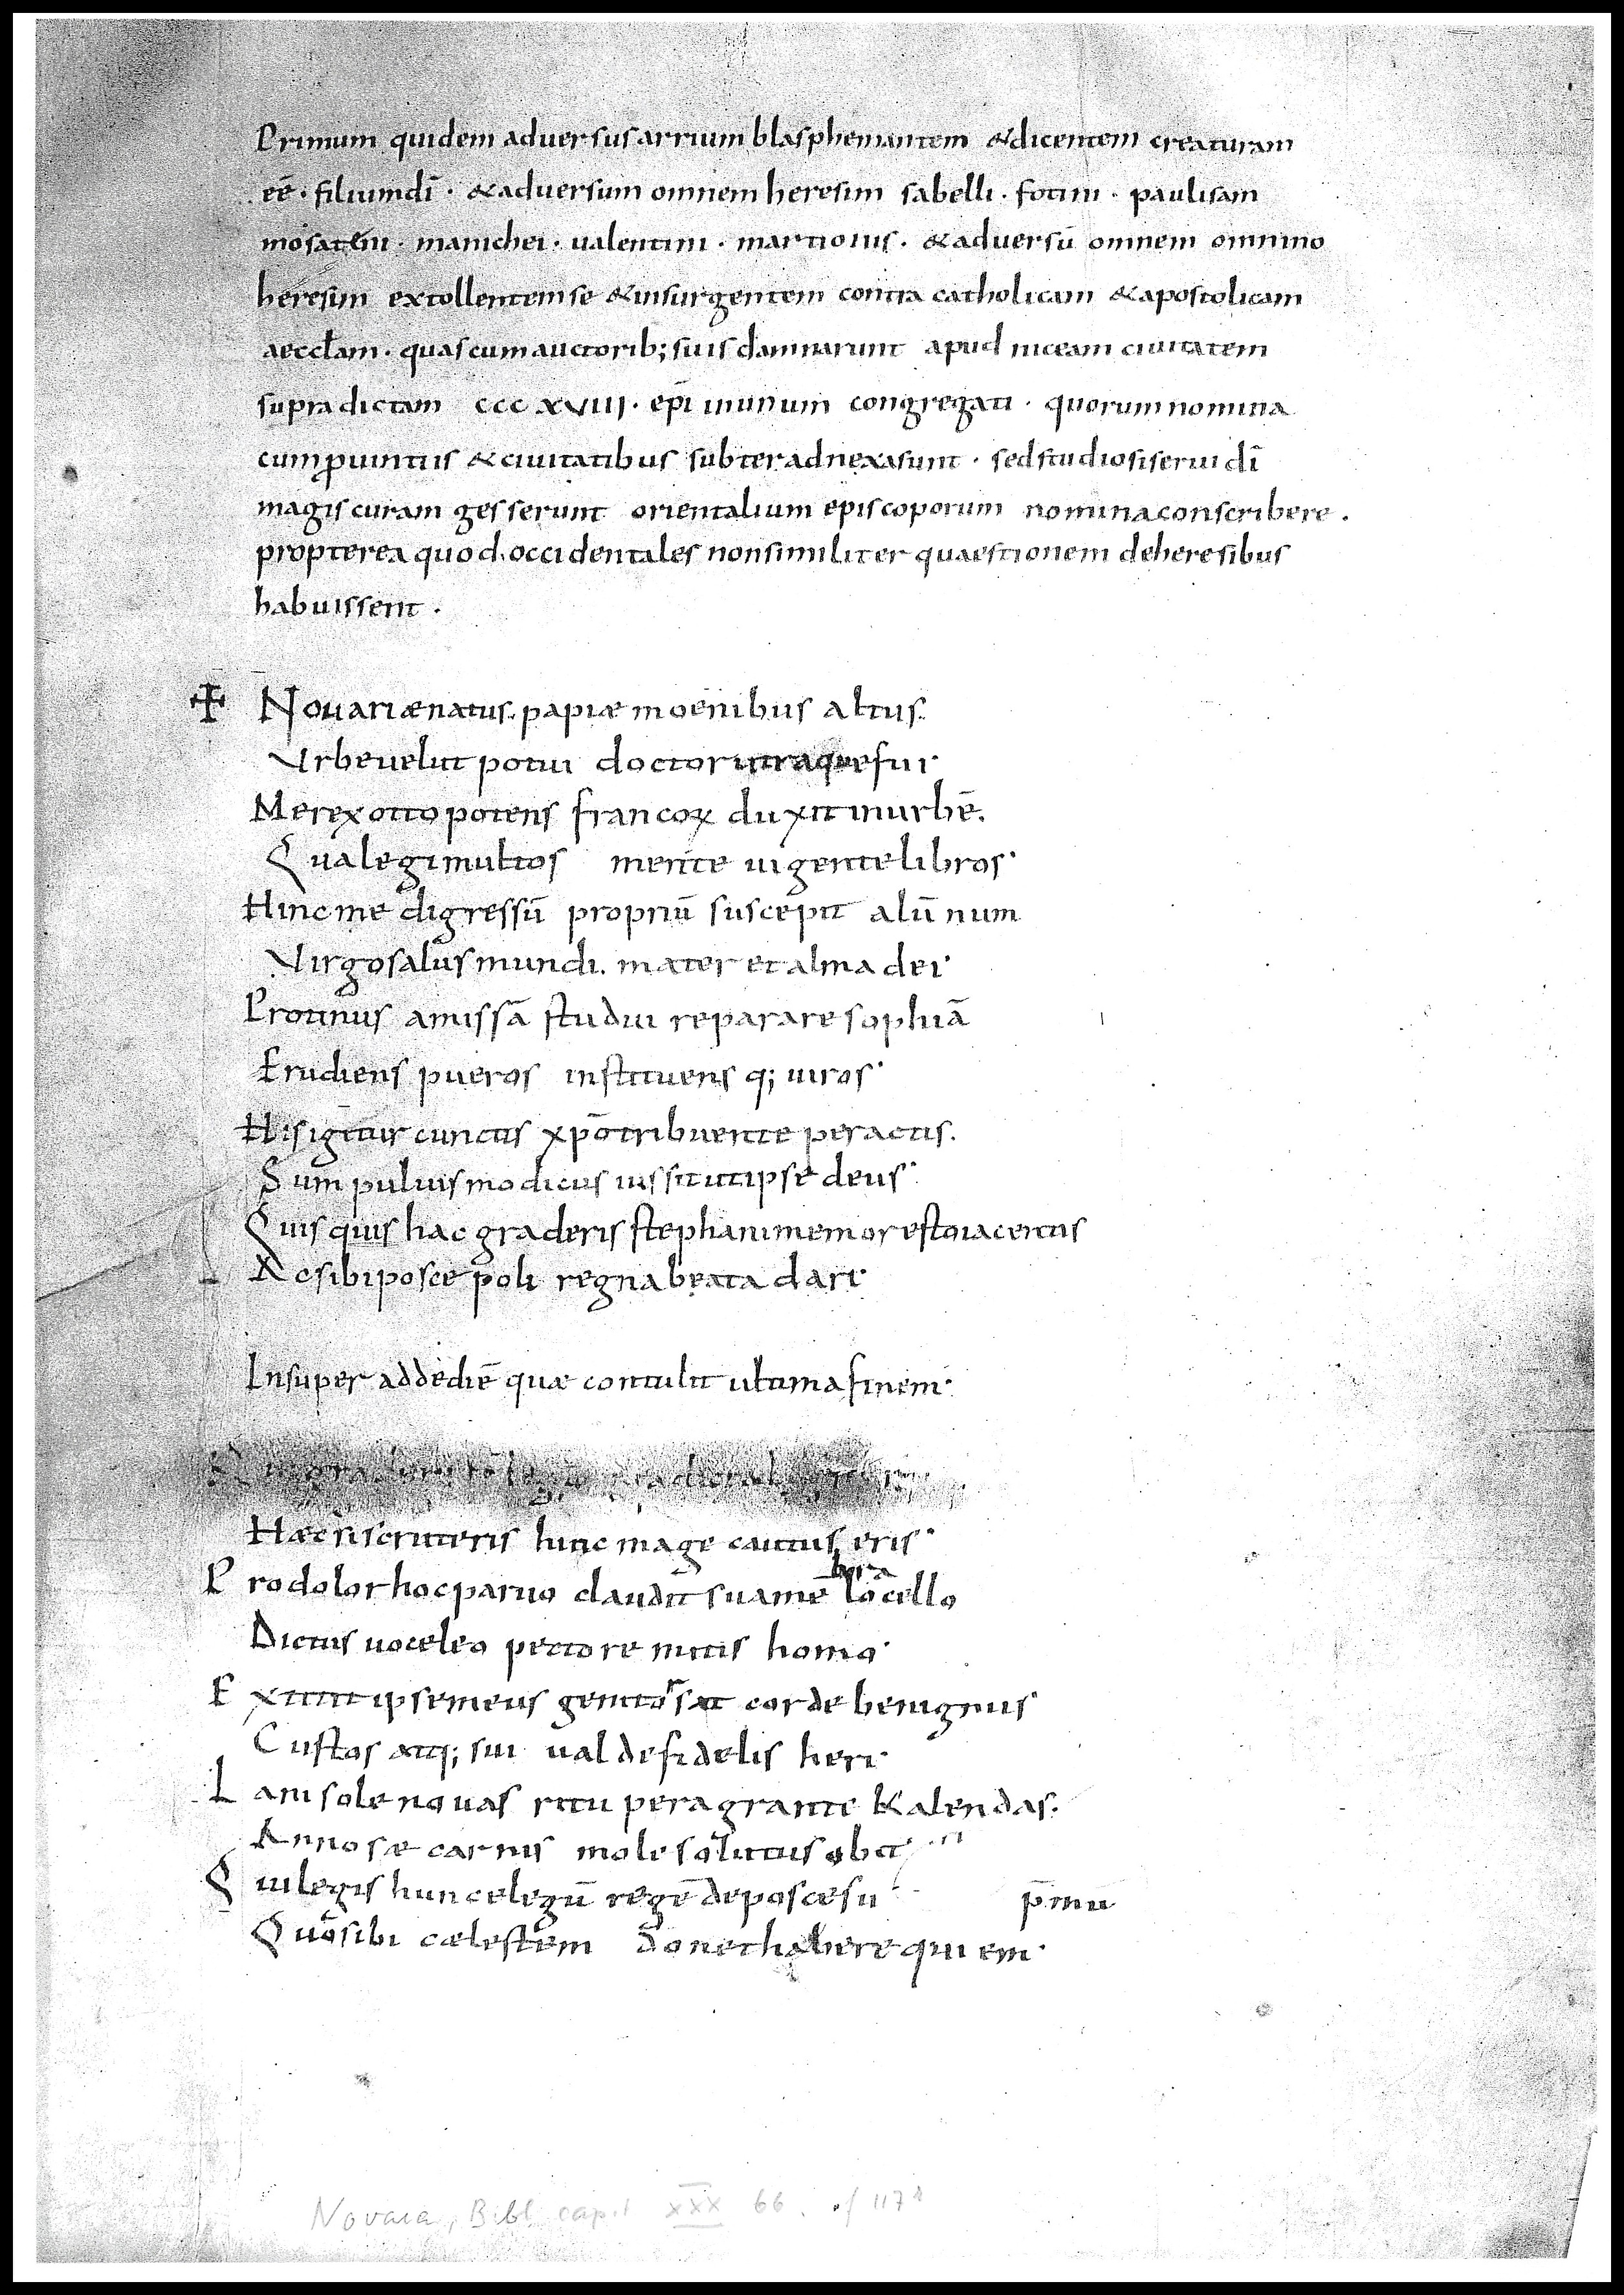 Primum quidem adversus arrium blasphemantem & dicentem creaturam
eē · filium dī · & adversum omnem heresim sabelli · fotini · pauli sam
mosateni · manichei · ualentini · martionis · & adversū omnem omnino
heresim extollentem se & insurgentem contra catholicam & apostolicam
aeccłam · quas cum auctorib; suis damnarunt apud niceam ciuitatem
supra dictam CCC XVIII · epī in unum congregati · quorum nomina
cum ꝓuintiis & ciuitatibus subter adnexa sunt · sed studiosi serui dī
magis curam gesserunt orientalium episcoporum nomina conscribere ·
propterea quod occidentales non similiter quaestionem de heresibus
habuissent ·
✠ Nouariæ natus · papiæ moenibus altus ·
Vrbe uelut potui doctor utraque fui ·
Me rex otto potens francoꝝ duxit in urbē ·
Qua legi multos mente uigente libros ·
Hinc me digressū propriū suscepit alūnum
Virgo salus mundi · mater et alma dei ·
Protinus amissā studui reparare sophiā
Erudiens pueros instituens q; uiros ·
His igitur cunctis xp̄o tribuente peractis ·
Sum puluis modicus iussit ut ipse deus ·
Quisquis hac graderis stephani memor esto iacentis
Ac sibi posce poli regna beata dari ·
Insuper adde diē quæ contulit ultima finem ·
Hæc si scruteris hinc mage cautus eris ·
Pro dolor hoc paruo claudit sua mē̄bra locello
Dictus uoce leo pectore mitis homo ·
Extitit ipse meus genitor sat corde benignus ·
Custos atq; sui ualde fidelis heri ·
Iani sole nouas ritu peragrante kalendas ·
Annosæ carnis mole solutus obit ·
Qui legis hunc elegū regē deposce
p̄mū
Quo sibi cælestem donet habere quiem ·
Novara, Bibl. capit XXX 66. f 117r